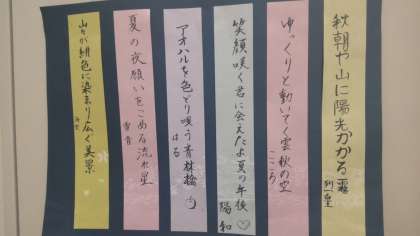 秋朝や山に陽光かかる靄
烈皇
ゆっくりと動いてく雲秋の空
こころ
笑顔咲く君に会えたよ夏の午後♡
陽和
アオハルを色どり唄う青林檎
はる
夏の夜願いをこめる流れ星
山々が緋色に染まり広く美景